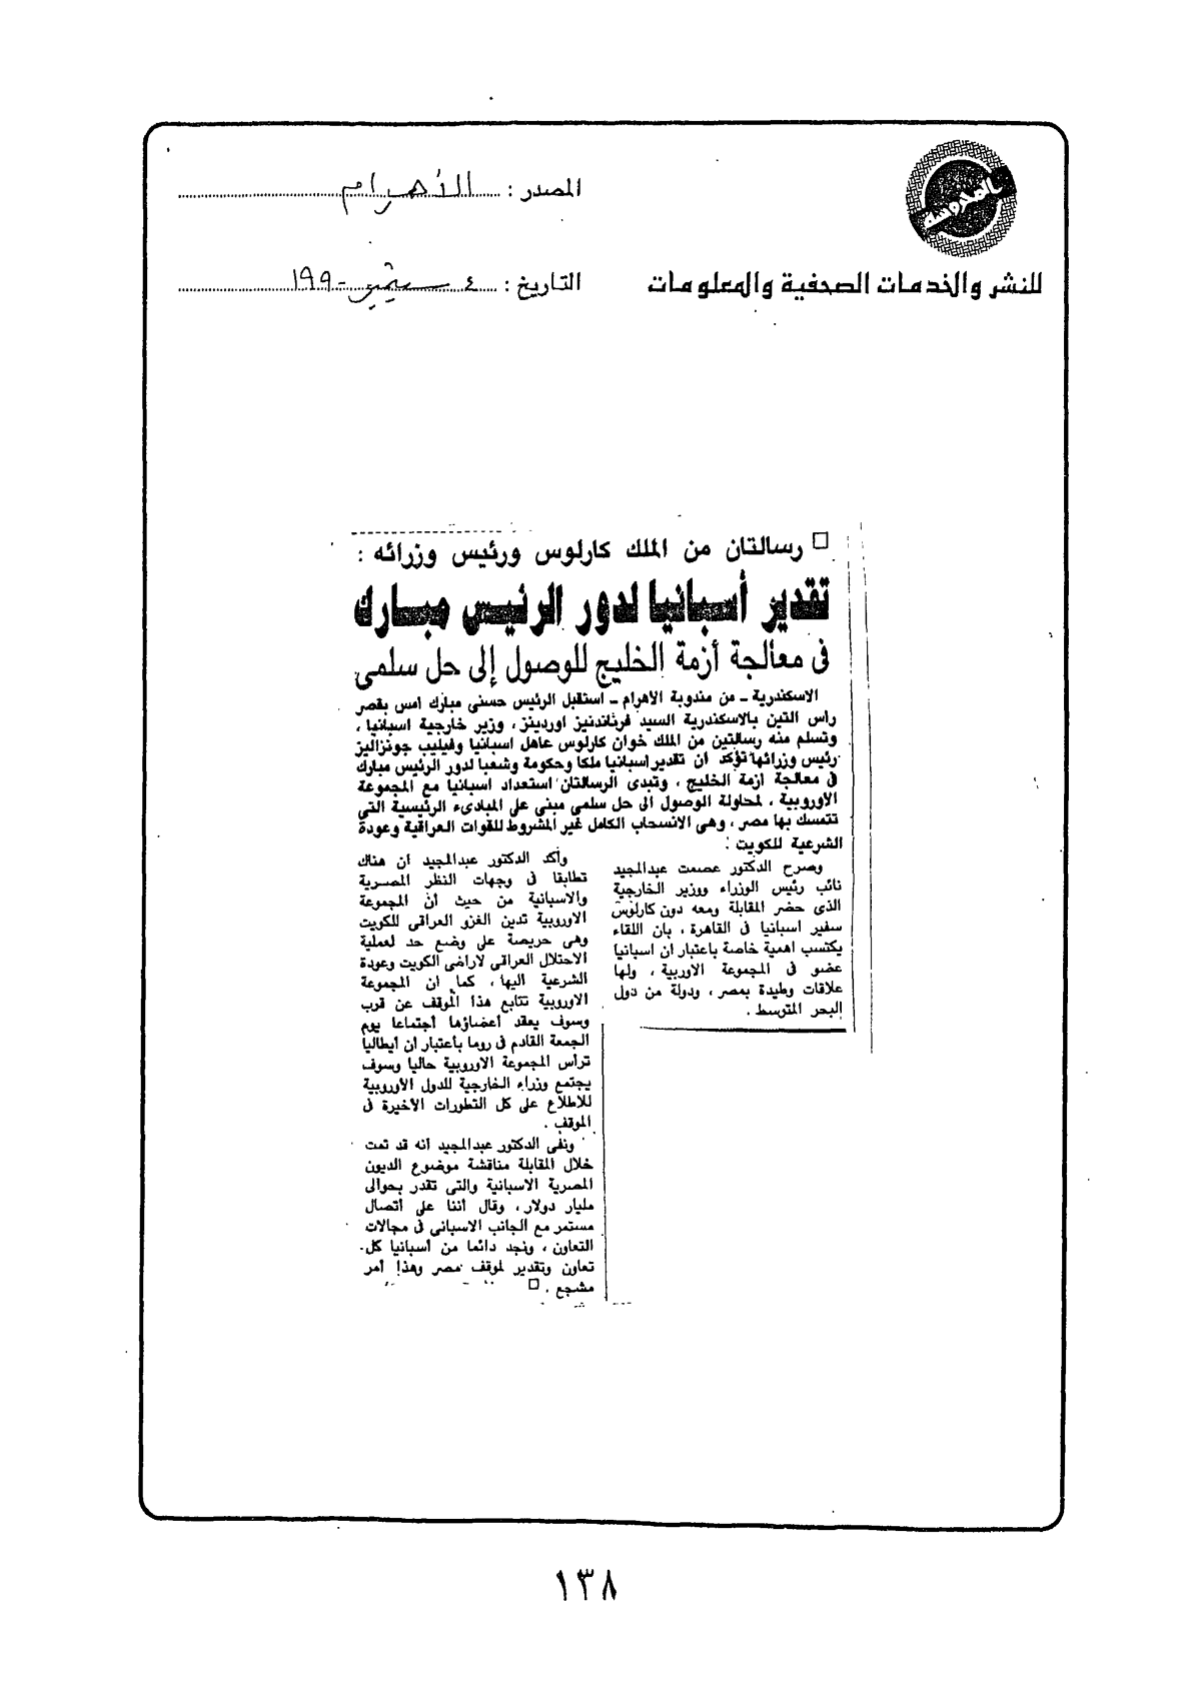 المحروسة
للنشر والخدمات الصحفية والمعلومات
المصدر : الأهرام
التاريخ : ٤ سبتمبر ١٩٩٠
□ رسالتان من الملك كارلوس ورئيس وزرائه :
تقدير أسبانيا لدور الرئيس مبارك
فى معالجة أزمة الخليج للوصول إلى حل سلمى
الاسكندرية ـ من مندوبة الاهرام ـ استقبل الرئيس حسنى مبارك امس بقصر
راس التين بالاسكندرية السيد فرناندنيز اوردينز ، وزير خارجية اسبانيا ،
وتسلم منه رسالتين من الملك خوان كارلوس عاهل اسبانيا وفيليب جونزاليز
رئيس وزرائها تؤكد ان تقدير اسبانيا ملكا وحكومة وشعبا لدور الرئيس مبارك
فى معالجة ازمة الخليج ، وتبدى الرسالتان استعداد اسبانيا مع المجموعة
الاوروبية ، لمحاولة الوصول الى حل سلمى مبنى على المبادىء الرئيسية التى
تتمسك بها مصر ، وهى الانسحاب الكامل غير المشروط للقوات العراقية وعودة
الشرعية للكويت .
وصرح الدكتور عصمت عبدالمجيد
نائب رئيس الوزراء ووزير الخارجية
الذى حضر المقابلة ومعه دون كارلوس
سفير اسبانيا فى القاهرة ، بان اللقاء
يكتسب اهمية خاصة باعتبار ان اسبانيا
عضو فى المجموعة الاوربية ، ولها
علاقات وطيدة بمصر ، ودولة من دول
البحر المتوسط .
وأكد الدكتور عبدالمجيد ان هناك
تطابقا فى وجهات النظر المصرية
والاسبانية من حيث ان المجموعة
الاوروبية تدين الغزو العراقى للكويت
وهى حريصة على وضع حد لعملية
الاحتلال العراقى لاراضى الكويت وعودة
الشرعية اليها ، كما ان المجموعة
الاوروبية تتابع هذا الموقف عن قرب
وسوف يعقد أعضاؤها اجتماعا يوم
الجمعة القادم فى روما باعتبار ان ايطاليا
ترأس المجموعة الاوروبية حاليا وسوف
يجتمع وزراء الخارجية للدول الاوروبية
للاطلاع على كل التطورات الاخيرة فى
الموقف .
ونفى الدكتور عبدالمجيد انه قد تمت
خلال المقابلة مناقشة موضوع الديون
المصرية الاسبانية والتى تقدر بحوالى
مليار دولار ، وقال أننا على أتصال
مستمر مع الجانب الاسبانى فى مجالات
التعاون ، ونجد دائما من أسبانيا كل
تعاون وتقدير لموقف مصر وهذا أمر
مشجع . □
١٣٨